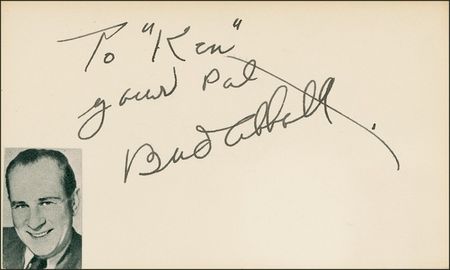 To "Ken"
your pal
Bud Abbott